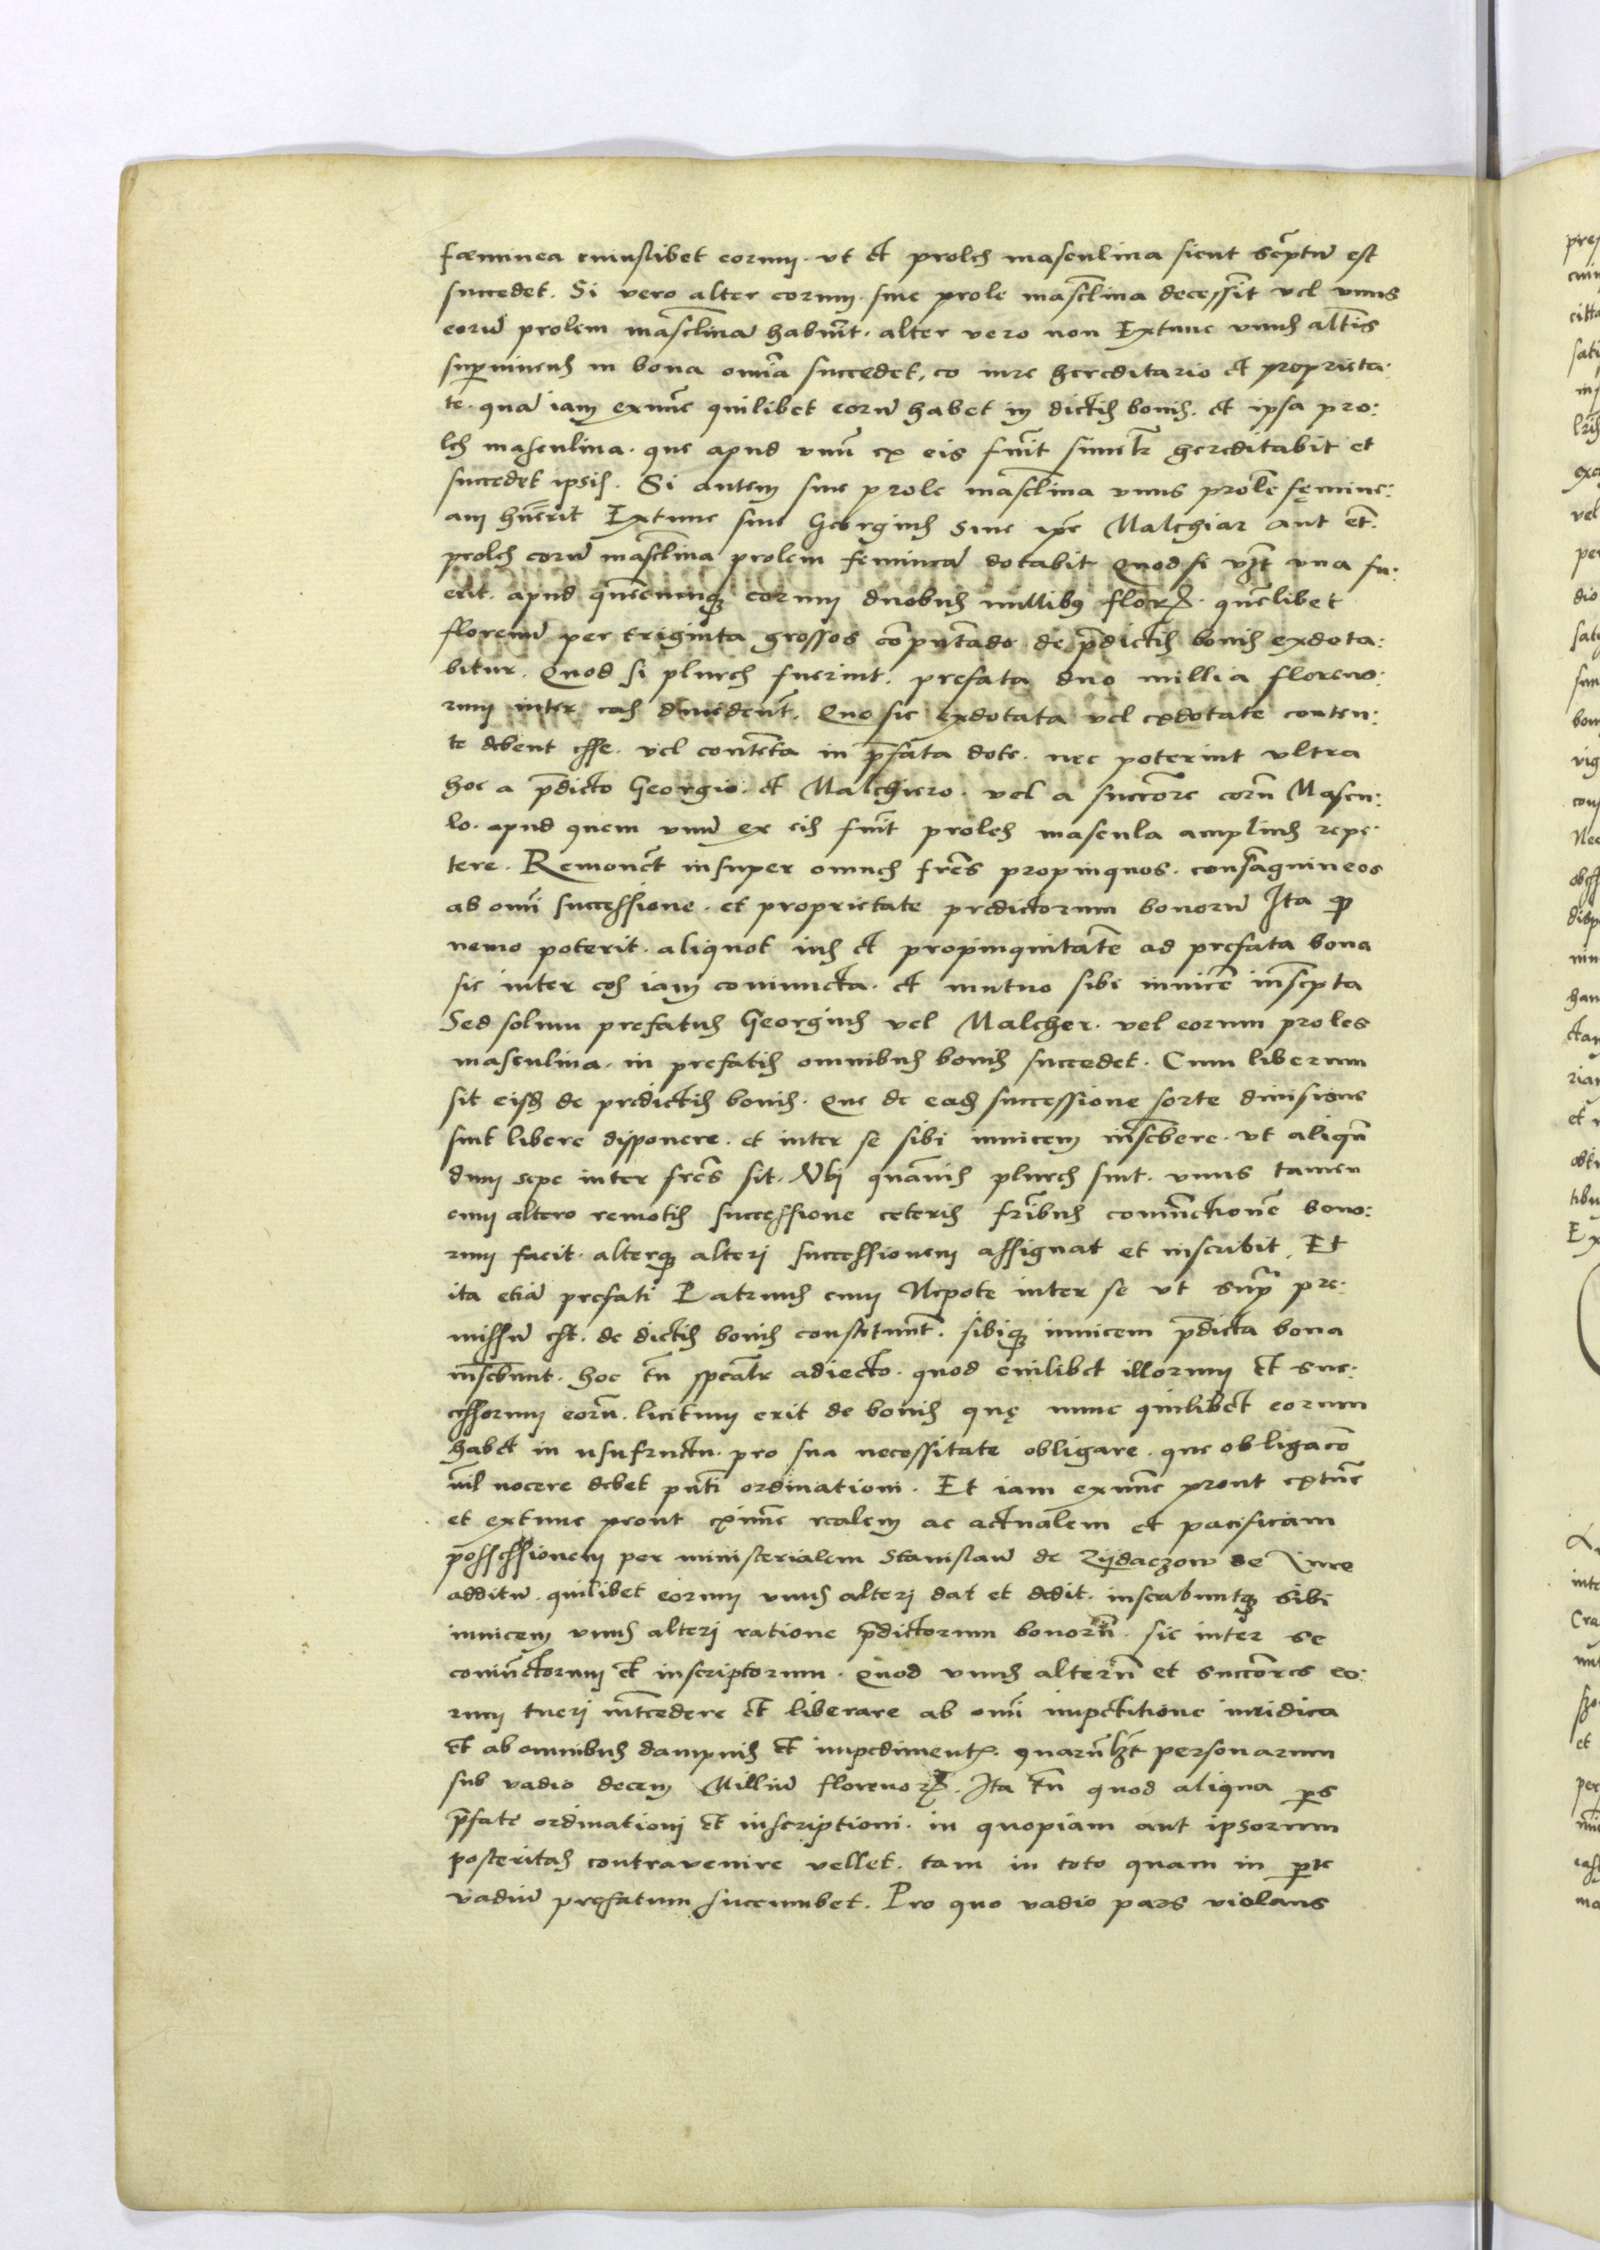 fœminea cuiuslibet eorum. vt et proles masculina sicut scͥptũ est
succedet. Si vero alter eorum sine prole mascl̃ina decesserĩt vel vnus
eorũ prolem mascl̃inã habuerĩt. alter vero non Extunc vnus altĩs
suꝑuiuens in bona omĩa succedet, eo iure hereditario et proprieta:
te. quã iam exnũc quilibet eorũ habet in dictis bonis. et ipsa pro:
les masculina. que apud vnũ ex eis fuerĩt similr̃ hereditabit et
succedet ipsis. Si autem sine prole mascl̃ina vnus prolẽ fęmine:
am hñerit Extunc siue Georgius siue ip̃e Malchiar aut et̃.
proles eorũ mascl̃ina prolem femineã dotabit Quod si vʒt vna fu:
erit. apud quẽcumqꝫ eorum duobus millibꝯ florꝝ. quẽlibet
florenũ per triginta grossos cõputãdo de p̃dictis bonis exdota:
bitur. Quod si plures fuerint. prefata duo millia floreno:
rum inter eas diuidẽnt. Que sic exdotata vel exdotate conten:
te debent esse. vel contẽta in p̃fata dote. nec poterint vltra
hoc a p̃dicto Georgio. et Malchiero. vel a succõre eorũ Mascu:
lo. apud quem vnũ ex eis fuerĩt proles mascula amplius repe:
tere. Remouẽt insuper omnes fr̃es propinquos. consãguineos
ab omĩ successione. et proprietate predictorum bonorũ Ita ꝙ
nemo poterit. aliquot ius et propinquitatẽ ad prefata bona
sic inter eos iam coniuncta. et mutuo sibi inuicẽ inscͥpta
Sed solum prefatus Georgius vel Malcher. vel eorum proles
masculina. in prefatis omnibus bonis succedet. Cum liberum
sit eisd̃ de predictis bonis. Que de ead̃ successione sorte diuisione
sint libere disponere. et inter se sibi inuicem inscͥbere. vt aliqñ
dum sepe inter fr̃es sit. Vbi quãuis plures sint. vnus tamen
cum altero remotis successione ceteris fr̃ibus coniũctionẽ bono:
rum facit. alterqꝫ alteri successionem assignat et inscribit. Et
ita etiã prefati Patruus cum Nepote inter se vt supͣ pre:
missũ est. de dictis bonis constitũut. sibiqꝫ inuicem p̃dicta bona
inscͥbunt. hoc tñ spẽalr̃ adiecto. quod cuilibet illorum et suc:
cessorum eorũ. licitum erit de bonis quę nunc quilibet eorum
habet in usufructu. pro sua necessitate obligare. que obligacõ
nil̃ nocere debet pñti ordinationi. Et iam exnũc prout extũc
et extunc prout exnũc realem ac actualem et pacificam
possessionem per ministerialem Stanislaũ de Zÿdaczow de Iure
additũ. quilibet eorum vnus alteri dat et dedit. inscribuntqꝫ sibi
inuicem vnus alteri ratione p̃dictorum bonorũ. sic inter se
coniũctorum et inscriptorum. Quod vnus alterũ et succõres eo:
rum tueri int̃cedere et liberare ab omĩ impetitione iuridica
et ab omnibus dampnis et impedimentꝭ. quarũlʒt personarum
sub vadio decem Milliũ florenorꝝ. Ita tñ quod aliqua ꝑs
p̃fate ordinationi et inscriptioni. in quopiam aut ipsorum
posteritas contravenire vellet. tam in toto quam in ꝑte
vadiũ prefatum succumbet. Pro quo vadio pars violans